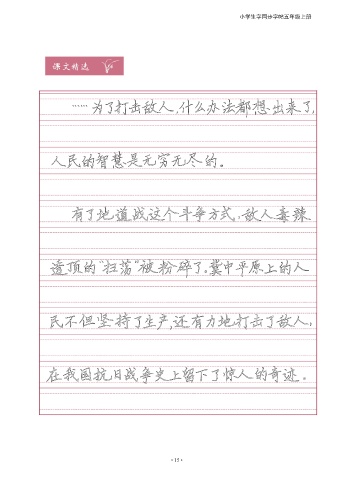 小学生字同步字帖五年级上册
课文精选
……为了打击敌人,什么办法都想出来了,
人民的智慧是无穷无尽的。
有了地道战这个斗争方式,敌人毒辣
透顶的“扫荡”被粉碎了。冀中平原上的人
民不但坚持了生产,还有力地打击了敌人,
在我国抗日战争史上留下了惊人的奇迹。
· 15 ·